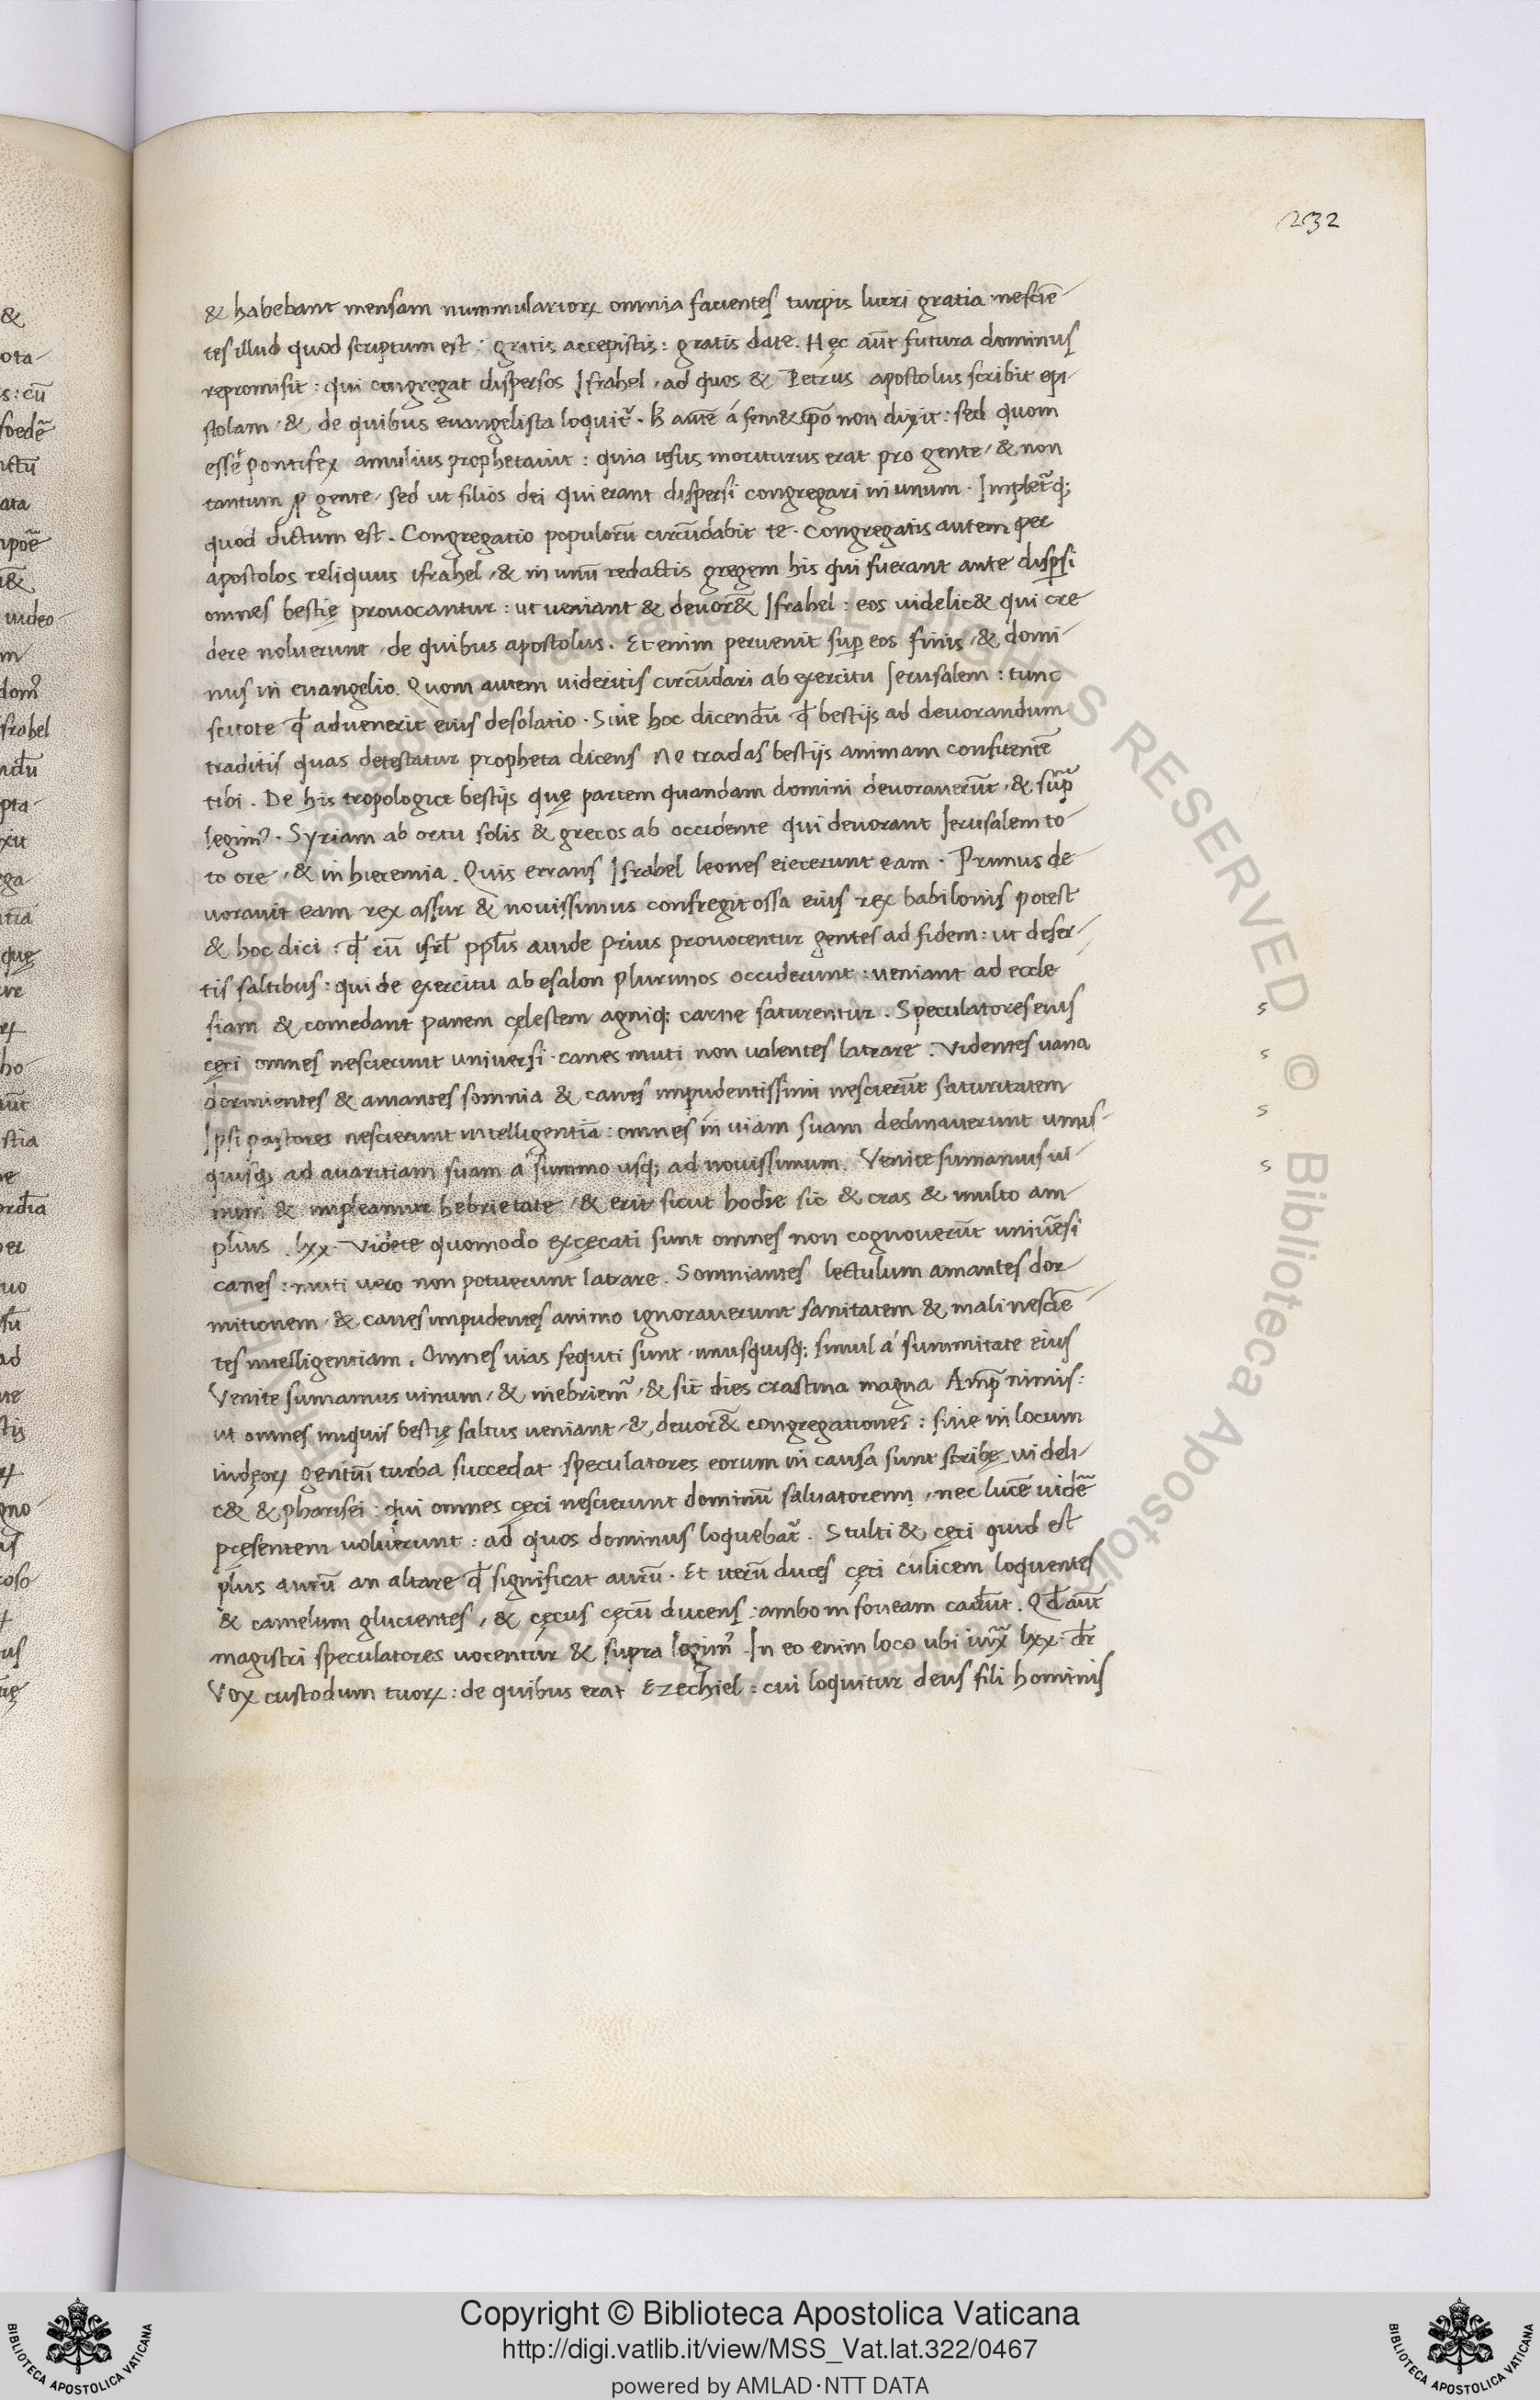 232
& habebant mensam nummularioꝝ omnia facientes turpis lucri gratia nesciē-
tes illud quod scriptum est: gratis accepistis: gratis date. Hęc aūt futura dominus
repromisit: qui congregat dispersos Israhel, ad quos & Petrus apostolus scribit epi-
stolam, & de quibus euangelista loquit᷑. non dixit: sed quom
esset pontifex anni ilius prophetauit: quia iesus moriturus erat pro gente, & non
tantum ꝓ gente, sed ut filios dei qui erant dispersi congregari in unum. Implet᷑qꝫ
quod dictum est. Congregatio populorū circūdabit te. Congregatis autem per
apostolos reliquiis israhel, & in unū redactis gregem his qui fuerant ante disꝑsi
omnes bestię prouocantur: ut ueniant & deuor&̄ Israhel: eos uidelic& qui cre
dere noluerunt, de quibus apostolus. Et enim peruenit suꝑ eos finis, & domi-
nus in euangelio. Quom autem uideritis circūdari ab exercitu Ierusalem: tunc
scitote qđ aduenerit eius desolatio. Siue hoc dicendū qđ bestijs ad deuorandum
traditis quas detestatur propheta dicens Ne tradas bestijs animam confitentē
tibi. De his tropologice bestijs quę partem quandam domini deuorauerūt, & sup̄
legim᷒. Syriam ab ortu solis & grecos ab occidente qui deuorant Ierusalem to-
to ore, & in hieremia. Quis errans Israhel leones eiecerunt eam. Primus de-
uorauit eam rex assur & nouissimus confregit ossa eius rex babilonis potest
& hoc dici: qđ cū isrl̄ ppl̄is auide prius prouocentur gentes ad fidem: ut deser-
tis saltibus: qui de exercitu abesalon plurimos occiderunt: ueniant ad eccle-
siam & comedant panem cęlestem agniqꝫ carne saturentur. Speculatores eius
cęci omnes nescierunt uniuersi canes muti non ualentes latrare. Videntes uana
dormientes & amantes somnia & canes impudentissimi nescierūt saturitatem
Ipsi pastores nescierunt intelligentiā: omnes in uiam suam declinauerunt unus-
quisqꝫ ad auaritiam suam a summo usqꝫ ad nouissimum. Venite sumamus ui-
num & impleamur hebrietate, & erit sicut hodie sic & cras & multo am-
plius. lxx. Videte quomodo excęcati sunt omnes non cognouerūt uniūesi
canes: muti uero non potuerunt latrare. Somniantes lectulum amantes dor-
mitionem, & canes impudentes animo ignorauerunt sanitatem & mali nesciē-
tes intelligentiam. Omnes uias sequti sunt, unusquisqꝫ simul á summitate eius
Venite sumamus uinum, & inebriem᷒, & sit dies crastina magna Amp̄ nimis:
ut omnes iniquis bestię saltus ueniant, & deuor&̄ congregationes: siue in locum
iudęoꝝ gentiū turba succedat speculatores eorum in causa sunt scribę uideli-
c& & pharisei: qui omnes cęci nescierunt dominū saluatorem, nec lucē uidē̄
pręsentem uoluerunt: ad quos dominus loquebat᷑. Stulti & cęci quid est
plus aurū an altare qđ significat aurū. Et uerū duces cęci culicem loquentes
& camelum glucientes, & cęcus cęcū ducens: ambo in foueam cadūt. Qđ aūt
magistri speculatores uocentur & supra legim᷒. In eo enim loco ubi iux̄ lxx. dr̄
Vox custodum tuoꝝ: de quibus erat Ezechiel: cui loquitur deus fili hominis
s
s
s
s
ALL RIGHTS RESERVED © Biblioteca Apostolica Vaticana
Copyright © Biblioteca Apostolica Vaticana
http://digi.vatlib.it/view/MSS_Vat.lat.322/0467
powered by AMLAD·NTT DATA
BIBLIOTECA APOSTOLICA VATICANA
BIBLIOTECA APOSTOLICA VATICANA